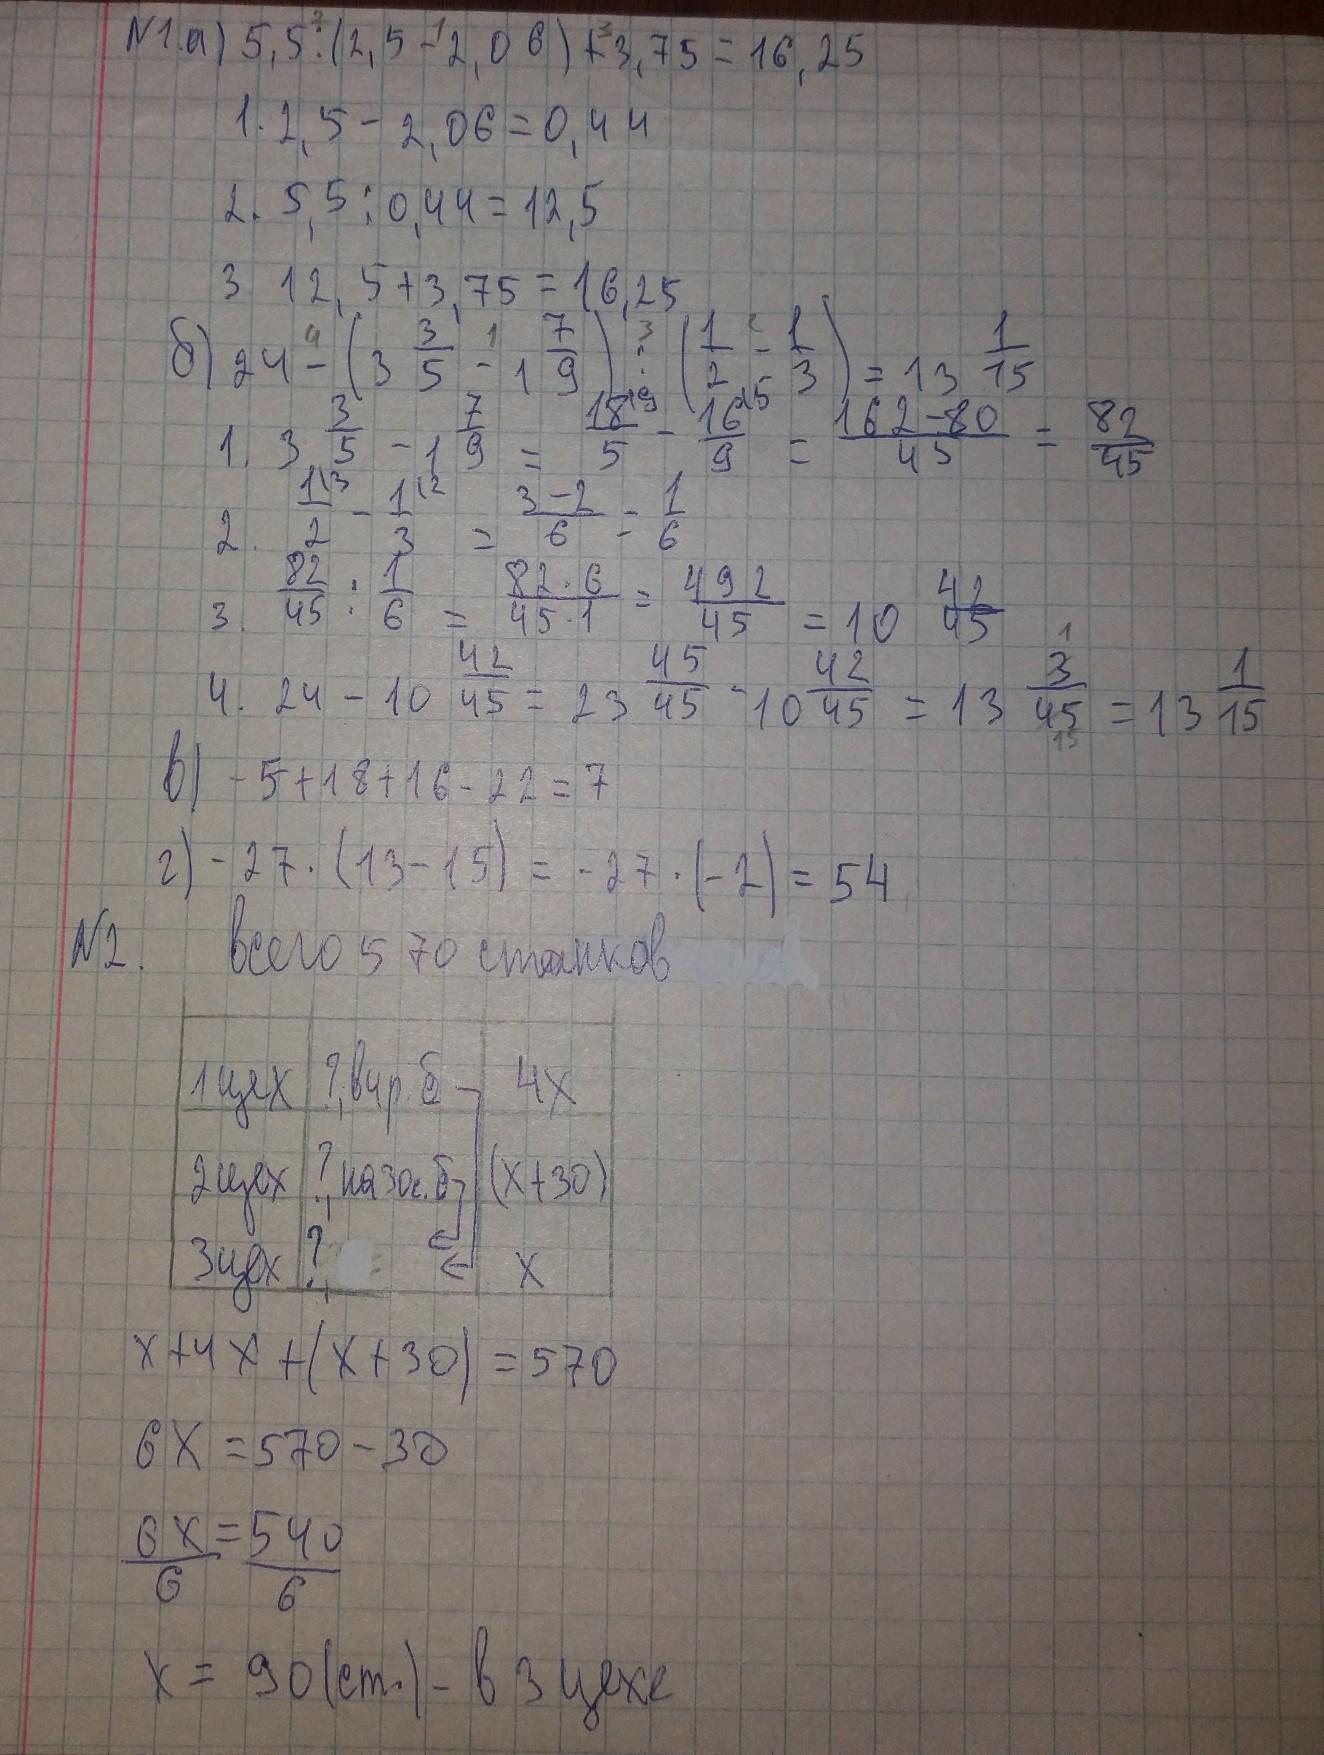 N1.а) 5,5:(2,5-2,06)+3,75=16,25
1. 2,5-2,06=0,44
2. 5,5:0,44=12,5
3 12,5+3,75=16,25
б) 24-(3 3/5-1 7/9):(1/2-1/3)=13 1/15
1. 3 3/5-1 7/9=18/5-16/9=(162-80)/45=82/45
2. 1/2-1/3=(3-2)/6=1/6
3. 82/45:1/6=(82·6)/(45·1)=492/45=10 42/45
4. 24-10 42/45=23 45/45-10 42/45=13 3/45=13 1/15
в) -5+18+16-22=7
г) -27·(13-15)=-27·(-2)=54
N2. Всего 570 станков
1цех ?,в4р.б 4x
2цех ?,на30с.б (x+30)
3цех ?, x
x+4x+(x+30)=570
6x=570-30
6x/6=540/6
x=90(ст.)-в 3 цехе